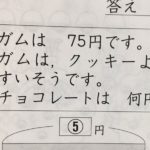 答え
ガムは 75円です。
ガムは，クッキーよ
すいそうです。
チョコレートは 何円
⑤ 円